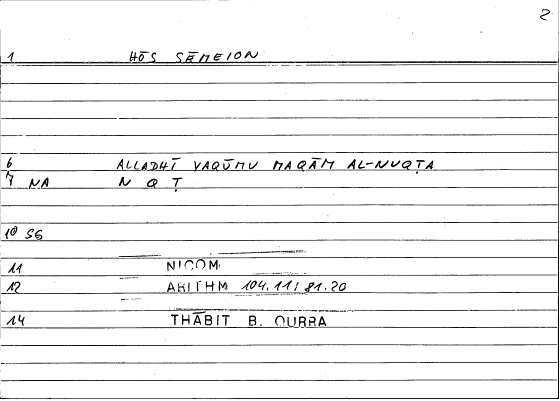 2
1 HŌS SĒMEION
6 ALLADHĪ YAQŪMU MAQĀM AL-NUQṬA
7 NA N Q Ṭ
10 SG
11 NICOM
12 ARITHM 104.11 / 81.20
14 THĀBIT B. QURRA